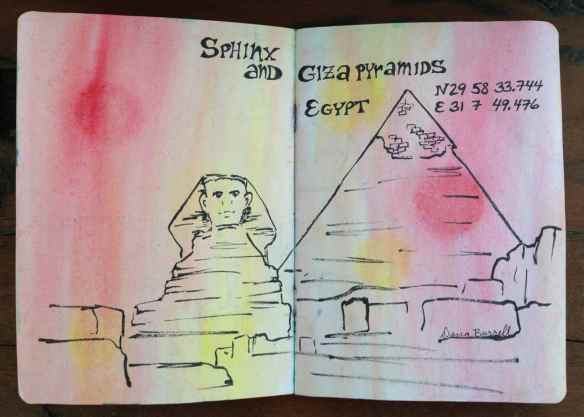 SPHINX
AND GIZA PYRAMIDS
EGYPT
N29 58 33.744
E 31 7 49.476